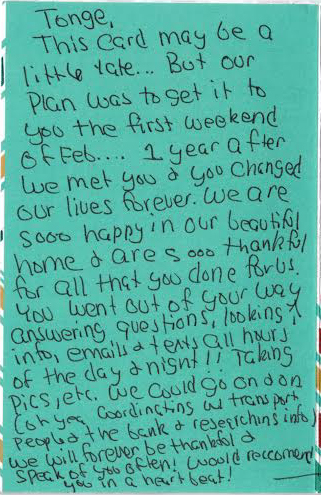 Tonge,
This Card may be a
little late... But our
Plan was to get it to
you the first weekend
of Feb.... 1 year after
we met you & you changed
our lives forever. We are
sooo happy in our beautiful
home & are sooo thankful
for all that you done for us.
You went out of your way
answering questions, looking ↑
info, emails & texts all hours
of the day & night!! Taking
pics, etc. We could go on & on
for you Coordinating w/ transport
people & the bank & researching info,
we will forever be thankful &
speak of you often! Would reccomend
you in a heart beat!